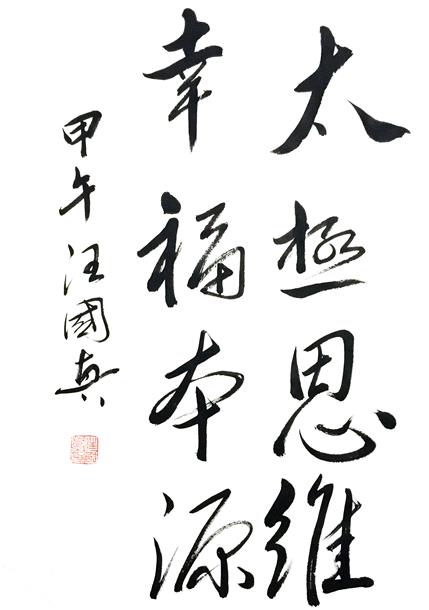 太極思維
幸福本源
甲午汪國真